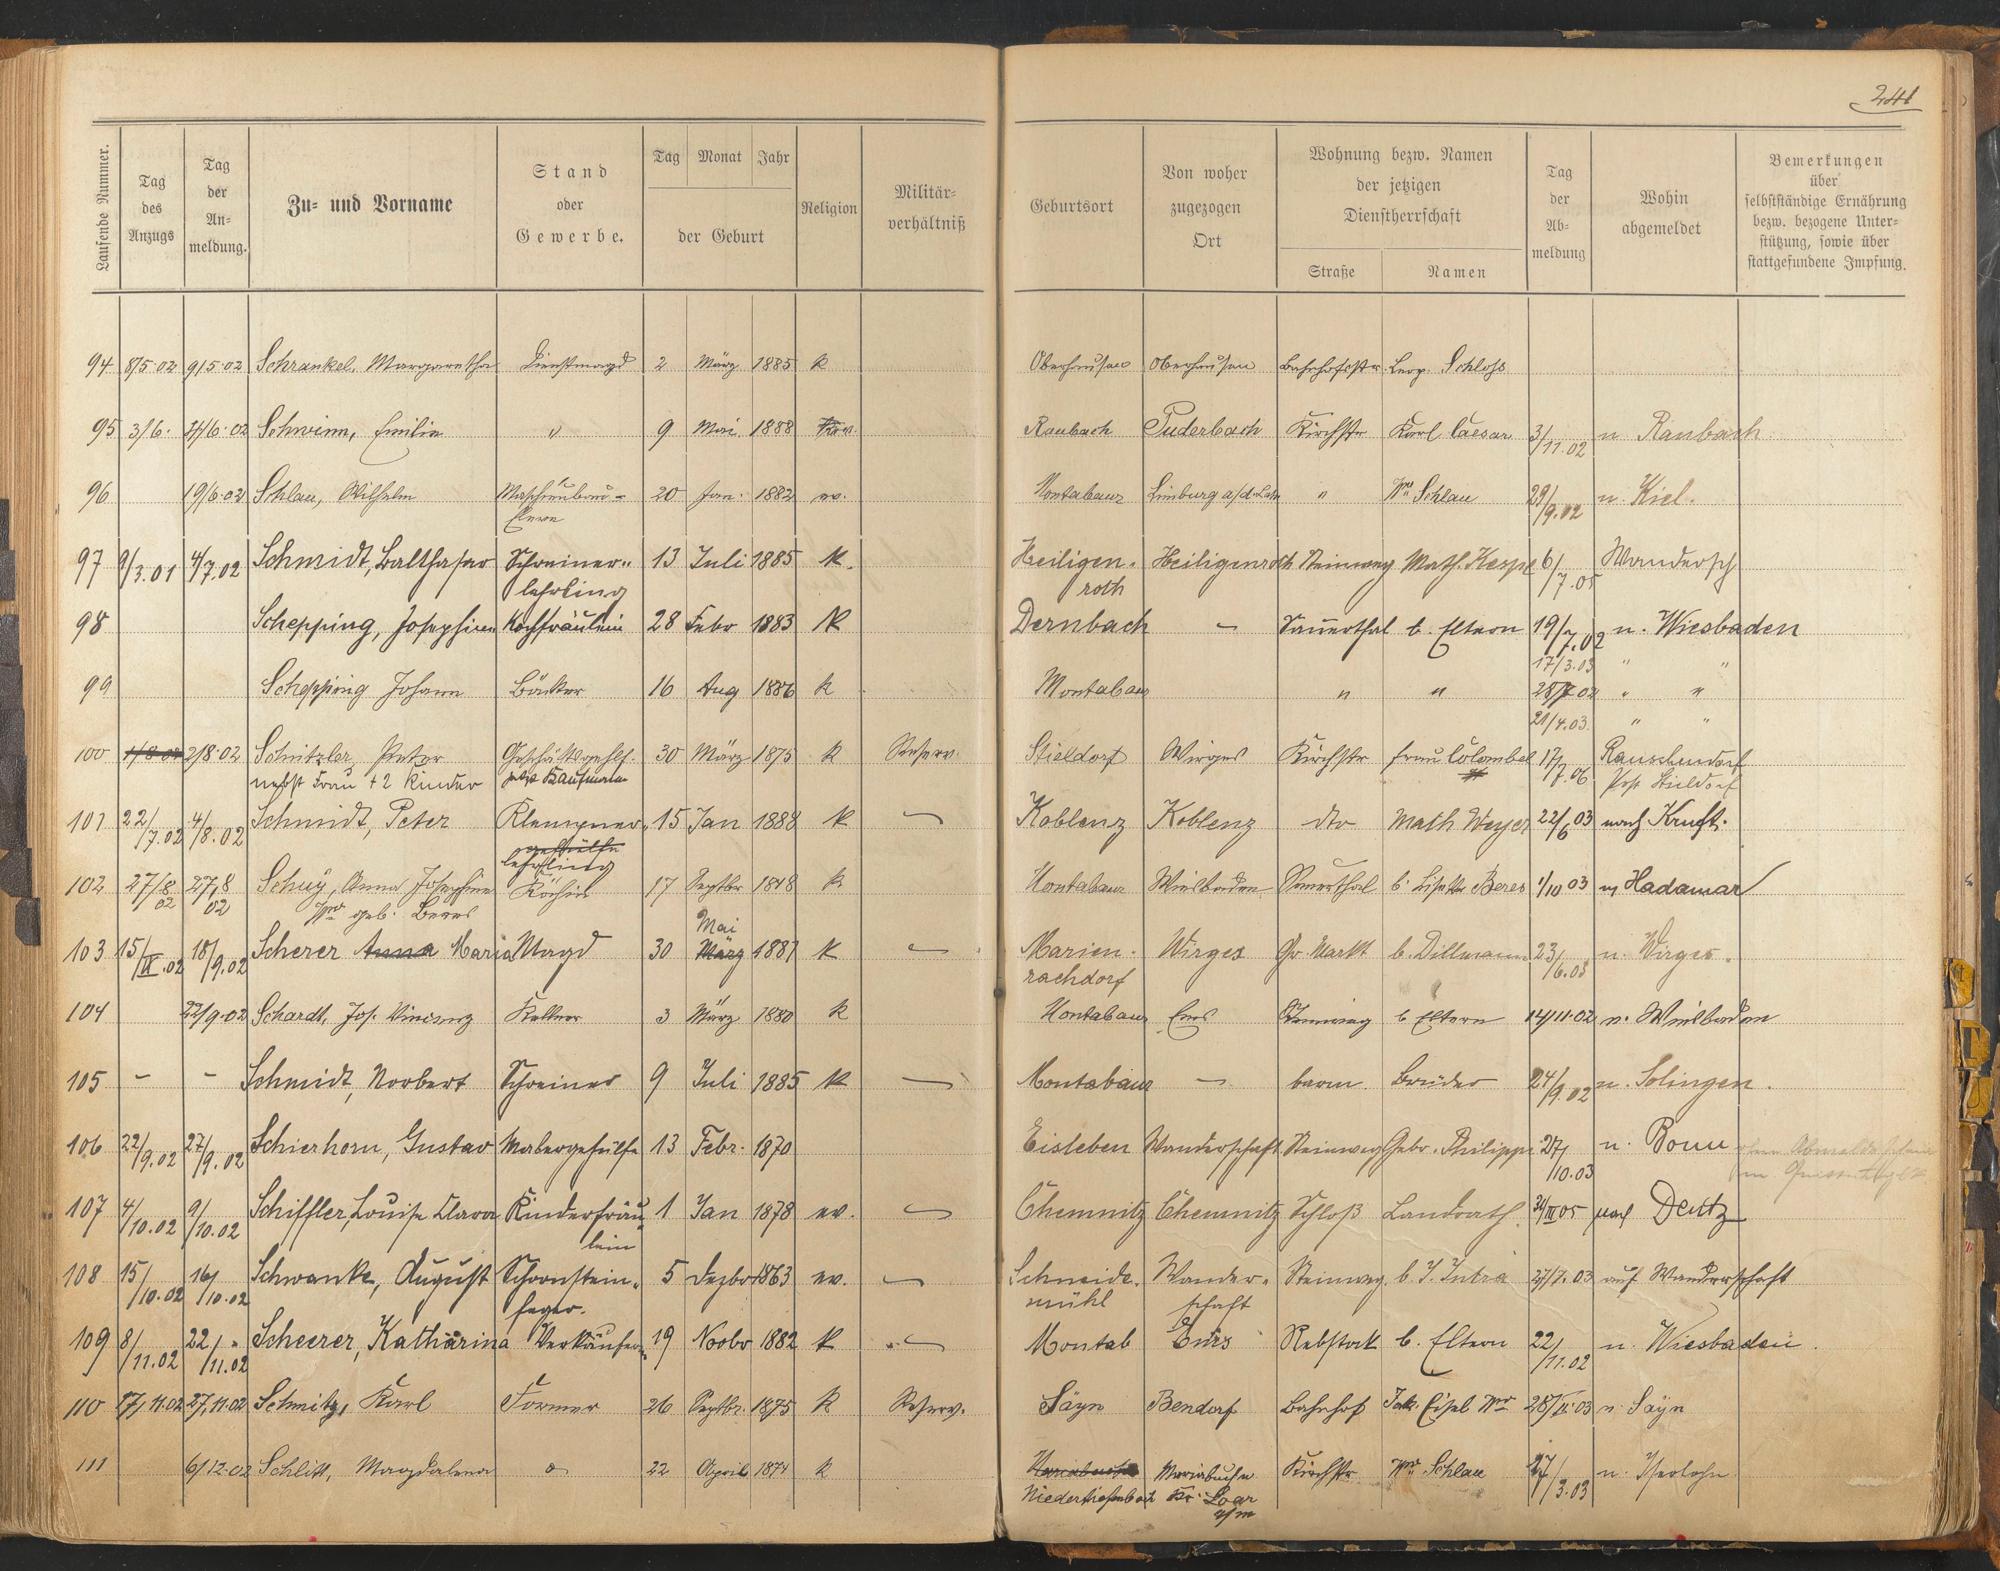 241
Laufende Nummer.
Tag des Anzugs
Tag der Anmeldung.
Zu- und Vorname
Stand oder Gewerbe.
Tag Monat Jahr
der Geburt
Religion
Militärverhältniß
Geburtsort
Von woher zugezogen Ort
Wohnung bezw. Namen der jetzigen Dienstherrschaft
Straße Namen
Tag der Abmeldung
Wohin abgemeldet
Bemerkungen über selbstständige Ernährung bezw. bezogene Unterstützung, sowie über stattgefundene Impfung.
94 8/5.02 9/5.02 Schrankel, Margaretha Dienstmagd 2 März 1885 k Oberhausen Oberhausen Bahnhofstr. Leop. Schloss
95 3/6. 6.02 Schwinn, Emilie " 9 Mai 1888 Raubach Puderbach Kirchstr Karl Caesar 3/11.02 n Raubach
96 19/6.02 Schlau, Wilhelm Maschinenbau-Eleve 20 Jan. 1882 ev. Montabaur Limburg a/d. Lahn " Wwe Schlau 29/9.02 n. Kiel.
97 9/3.01 4/7.02 Schmidt, Balthasar Schreinerlehrling 13 Juli 1885 k. Heiligenroth Heiligenroth Steinweg Math. 6/7.05 Wandersch
98 Schepping, Josephine Kochfräulein 28 Febr 1883 k Dernbach – Sauerthal b. Eltern 19/7.02 n. Wiesbaden
17/3.03 " "
99 Schepping Johann Bäcker 16 Aug 1886 k Montabaur " " 28/7 02 " "
21/4.03 " "
100 1/8 02 2/8.02 Schnitzler, Peter Geschäftsgehlf. 30 März 1875 k Reserv. Stieldorf Wirges Kirchstr Frau Colombel 17/7.06 Rauschendorf
nebst Frau + 2 Kinder Kaufmann Post Stieldorf
101 22/7.02 4/8.02 Schmidt, Peter Klempner gehülfe lehrling 15 Jan 1888 k – Koblenz Koblenz dto Math Weyer 22/6 03 nach Kruft.
102 27/8 02 27/8 02 Schuy, Anna Josephine Köchin 17 Septbr 1848 k Montabaur Wiesbaden Sauerthal b. Lisette Beres 1/10 03 n. Hadamar
Wwe geb. Beres
103 15/IX.02 18/9.02 Scherer Anna Maria Magd 30 März Mai 1887 k – Marienrachdorf Wirges Gr. Markt b. Dillmann 23/6.03 n. Wirges.
104 22/9.02 Schardt, Jos. Vincenz Kellner 3 März 1880 k Montabaur Ems Steinweg b Eltern 14/11.02 n. Wiesbaden
105 – – Schmidt, Norbert Schreiner 9 Juli 1885 k – Montabaur – Bruder 24/9.02 n. Solingen.
106 22/9.02 27/9.02 Schierhorn, Gustav Malergehülfe 13 Febr. 1870 Eisleben Wanderschaft Steinweg Gebr. Philippi 27/10.03 n. Bonn
107 4/10.02 9/10.02 Schiffler, Louise Clara Kinderfräulein 1 Jan 1878 ev. – Chemnitz Chemnitz Schloß Landrath. 31/III 05 nach Deutz
108 15/10.02 16/10.02 Schwanke, August Schornsteinfeger. 5 Dezbr 1863 ev. – Schneidemühl Wanderschaft Steinweg b. J. Intra 03 auf Wanderschaft
109 8/11.02 22/11.02 Scheerer, Katharina Verkäuferin 19 Novbr 1882 k – Montab Ems Rebstock b. Eltern 22/11.02 n. Wiesbaden.
110 17/11.02 27.11.02 Schmitz, Karl Former 26 Septbr. 1875 k Reserv. Sayn Bendorf Bahnhof Jak. Eisel Wwe 28/II.03 n. Sayn
111 6/12.02 Schlitt, Magdalena o 22 April 1874 k Kirchstr Wwe Schlau 27/3.03 n. Iserlohn
Niedertiefenbach